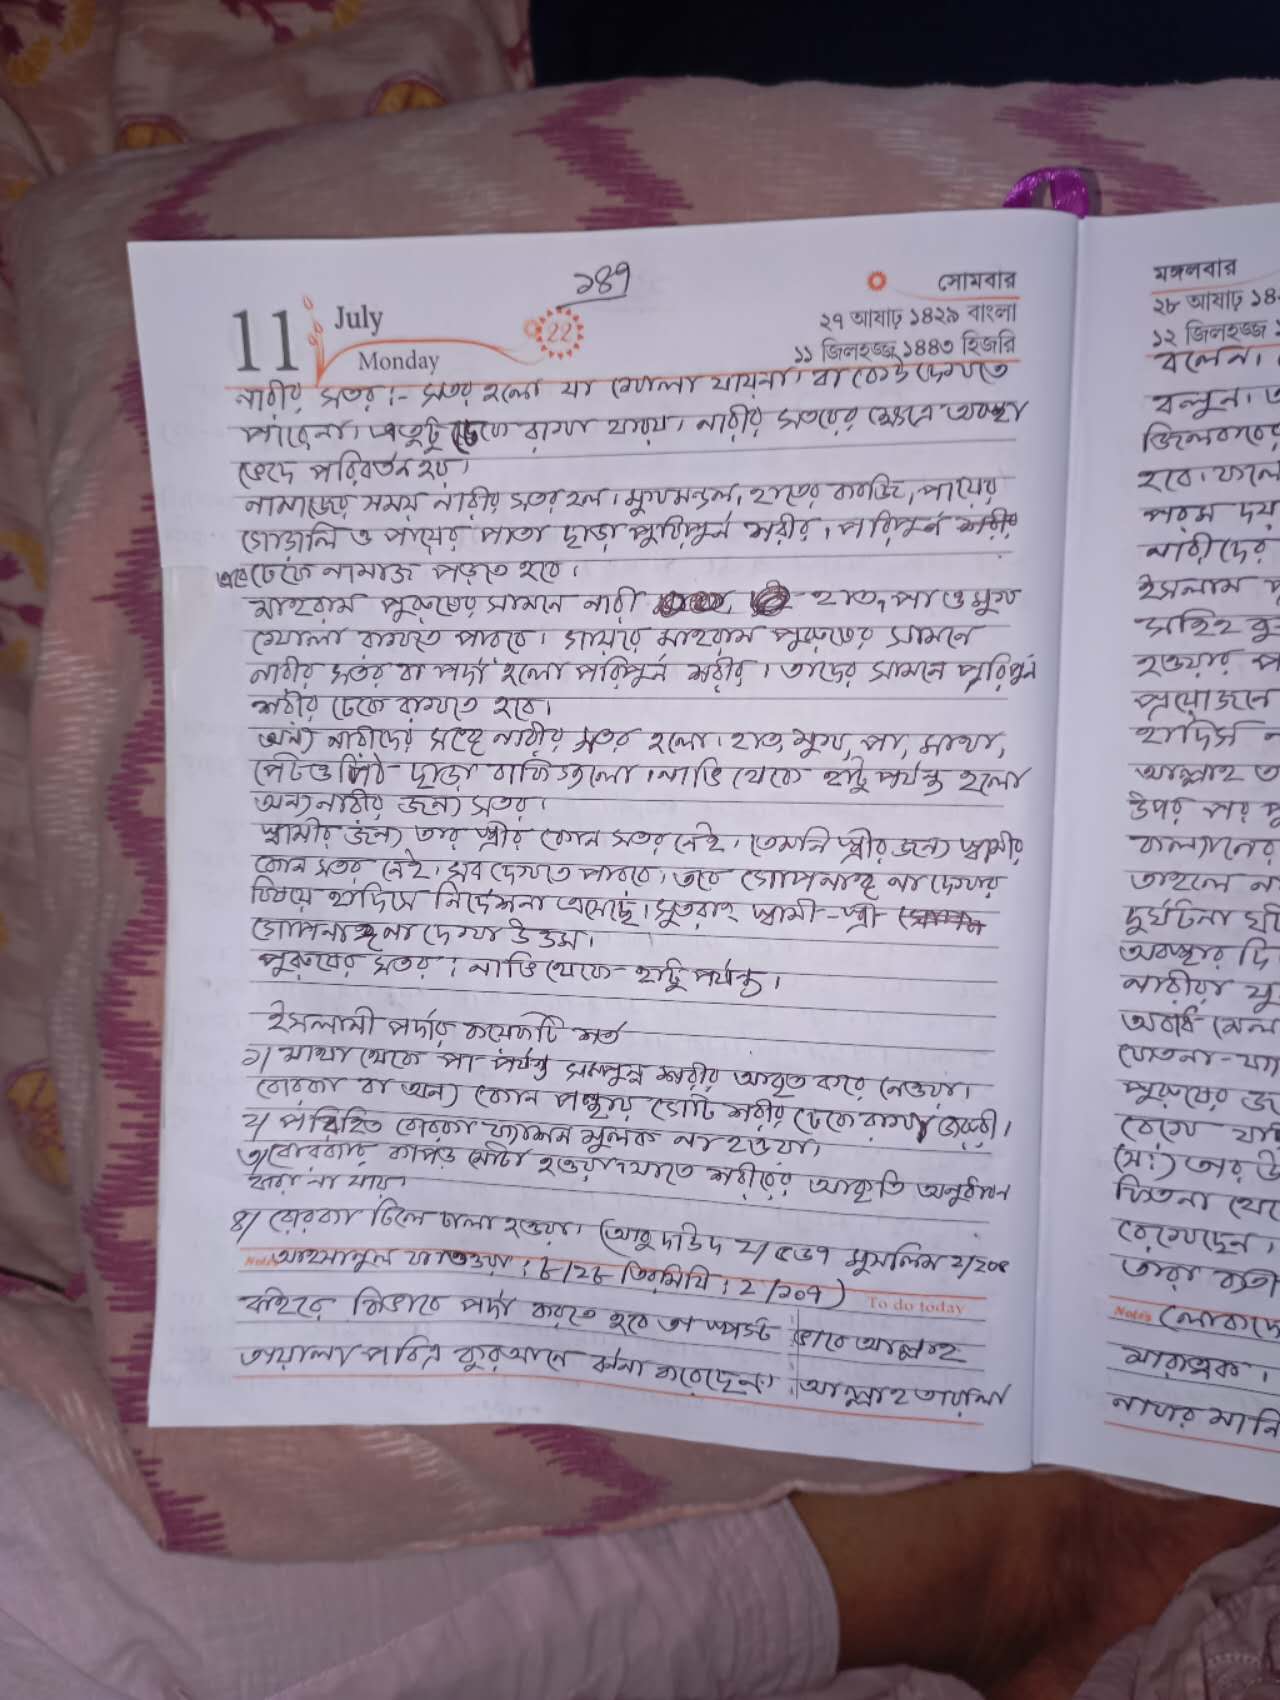 ১৪৭
11 July Monday
22
সোমবার
২৭ আষাঢ় ১৪২৯ বাংলা
১১ জিলহজ্জ ১৪৪৩ হিজরি
নারীর সতর :- সতর হলো যা খোলা যায়না। বা কেউ দেখতে
পারেনা। এতুটু ঢেকে রাখা যায়। নারীর সতরের ক্ষেত্রে অবস্থা
ভেদে পরিবর্তন হয়।
নামাজের সময় নারীর সতর হল। মুখমন্ডল, হাতের কবজি, পায়ের
গোড়ালি ও পায়ের পাতা ছাড়া পরিপূর্ন শরীর। পরিপূর্ন শরীর
ঢেকে নামাজ পড়তে হবে।
মাহরাম পুরুষের সামনে নারী হাত, পা ও মুখ
খোলা রাখতে পারবে। গায়রে মাহরাম পুরুষের সামনে
নারীর সতর বা পর্দা হলো পরিপূর্ন শরীর। তাদের সামনে পরিপূর্ন
শরীর ঢেকে রাখতে হবে।
অন্য নারীদের সঙ্গে নারীর সতর হলো। হাত, মুখ, পা, মাথা,
পেট ও পিঠ ছাড়া বাকিগুলো। নাভি থেকে হাটু পর্যন্ত হলো
অন্য নারীর জন্য সতর।
স্বামীর জন্য তার স্ত্রীর কোন সতর নেই। তেমনি স্ত্রীর জন্য স্বামীর
কোন সতর নেই। সব দেখতে পারবে। তবে গোপনাঙ্গ না দেখার
বিষয়ে হাদিসে নির্দেশনা এসেছে। সুতরাং স্বামী-স্ত্রী
গোপনাঙ্গ না দেখা উত্তম।
পুরুষের সতর : নাভি থেকে হাটু পর্যন্ত।
ইসলামী পর্দার কয়েকটি শর্ত
১/ মাথা থেকে পা পর্যন্ত সমপুন্ন শরীর আবৃত করে নেওয়া।
বোরকা বা অন্য কোন পন্থায় গোটা শরীর ঢেকে রাখা জরুরী।
২/ পরিহিত বোরকা ফ্যাশন মূলক না হওয়া।
৩/ বোরকার কাপড় মোটা হওয়া। যাতে শরীরের আকৃতি অনুধাবন
করা না যায়।
৪/ বোরকা ঢিলে ঢালা হওয়া। (আবু দাউদ ২/৫৬৭ মুসলিম ২/২০৫
Notes আহসানুল ফাতওয়া : ৮/২৮ তিরমিযি : ২/১০৭)
To do today
বাহিরে কিভাবে পর্দা করতে হবে তা স্পস্ট ভাবে আল্লাহ
তায়ালা পবিত্র কুরআনে বর্ননা করেছেন। আল্লাহ তায়ালা
মঙ্গলবার
২৮ আষাঢ় ১৪
১২ জিলহজ্জ
বলেন।
বলুন।
হবে। ফলে
পরম দয়
নারীদের
ইসলাম
সহিহ বু
হওয়ার প
প্রয়োজনে
হাদিস ন
আল্লাহ ত
উপর পর পু
কল্যানের
তাহলে ন
দুর্ঘটনা ঘ
অবস্থার দি
নারীরা যু
অবাধ মেল
ফেতনা-ফা
পুরুষের জ
রেখে যা
(সঃ) তার উ
ফিতনা থে
রেখেছেন।
তারা ব্যতী
Notes লোকদে
মারাত্মক।
নাফরমানি